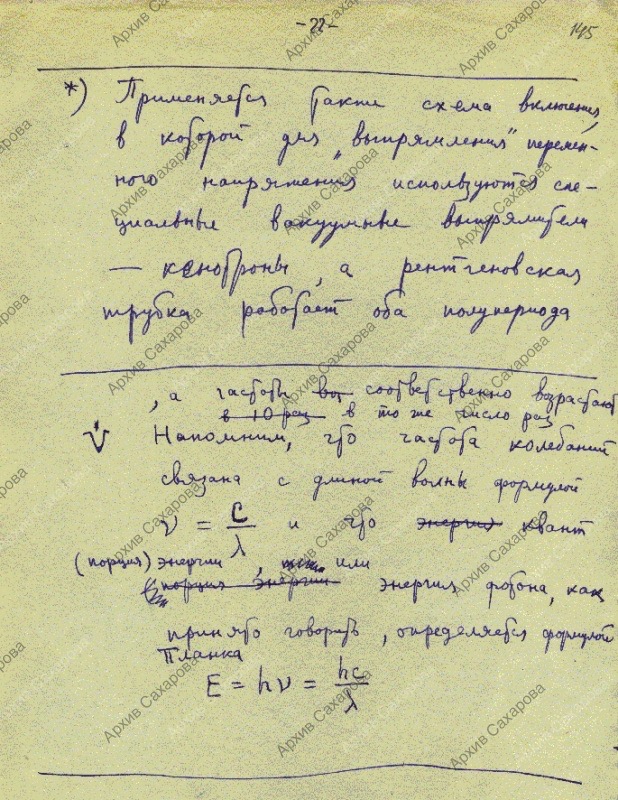 -22-
145
*) Применяется также схема включения,
в которой для „выпрямления" перемен-
ного напряжения используются спе-
циальные вакуумные выпрямители
— кенотроны, а рентгеновская
трубка работает оба полупериода
, а частоты соответственно возрастают
в 10 раз в то же число раз
Напомним, что частота колебаний
связана с длиной волны формулой
ν = c/λ и что энергия квант
(порция) энергии, или
порция энергии энергия фотона, как
принято говорить, определяется формулой
Планка
E = hν = hc/λ
Архив Сахарова